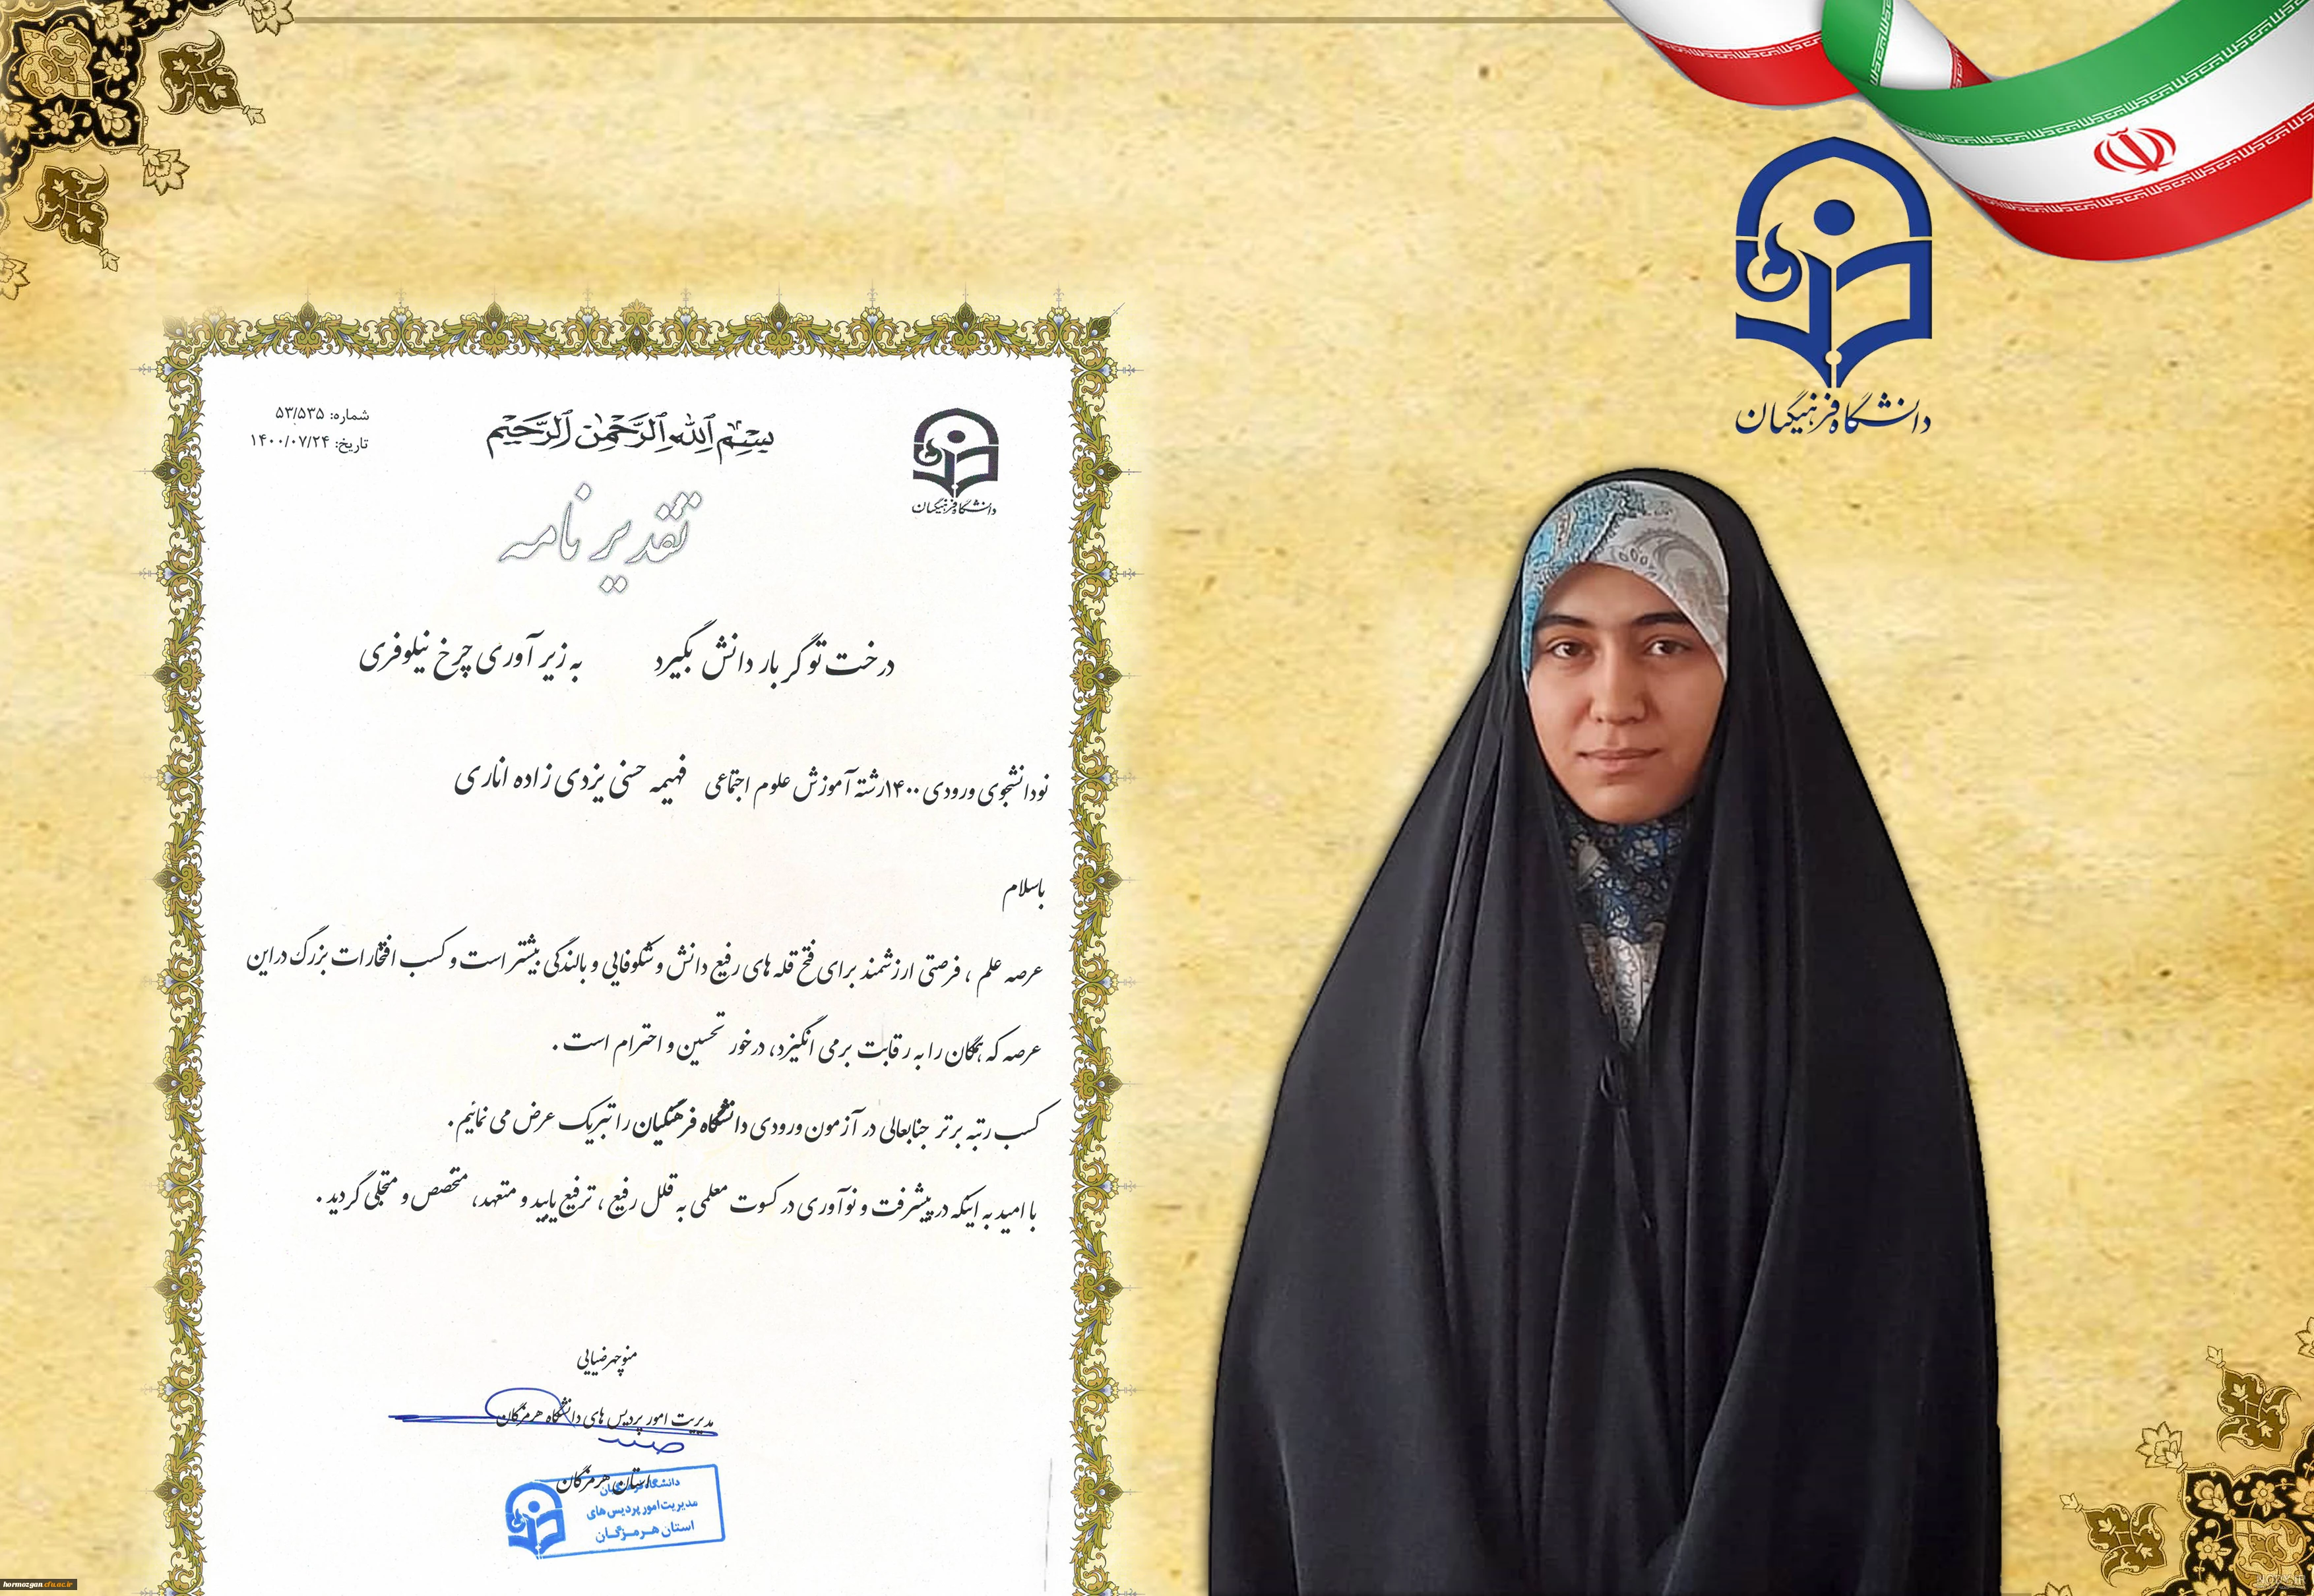 دانشگاه فرهنگیان
دانشگاه فرهنگیان
بسم الله الرحمن الرحیم
شماره: ۵۳/۵۳۵
تاریخ: ۱۴۰۰/۰۷/۲۴
تقدیر نامه
درخت تو گر بار دانش بگیرد به زیر آوری چرخ نیلوفری
نودانشجوی ورودی ۱۴۰۰رشته آموزش علوم اجتماعی فهیمه حسنی یزدی زاده اناری
باسلام
عرصه علم ، فرصتی ارزشمند برای فتح قله های رفیع دانش و شکوفایی و بالندگی بیشتر است و کسب افتخارات بزرگ دراین
عرصه که همگان را به رقابت برمی انگیزد، درخور تحسین و احترام است .
کسب رتبه برتر جنابعالی در آزمون ورودی دانشگاه فرهنگیان را تبریک عرض می نمائیم.
با امید به اینکه در پیشرفت و نوآوری در کسوت معلمی به قلل رفیع ، ترفیع یابید و متعهد، متخصص و متجلی گردید .
منوچهر ضیایی
مدیریت امور پردیس های دانشگاه هرمزگان
استان هرمزگان
دانشگاه فرهنگیان
مدیریت امور پردیس های
استان هرمزگان
hormozgan.cfu.ac.ir